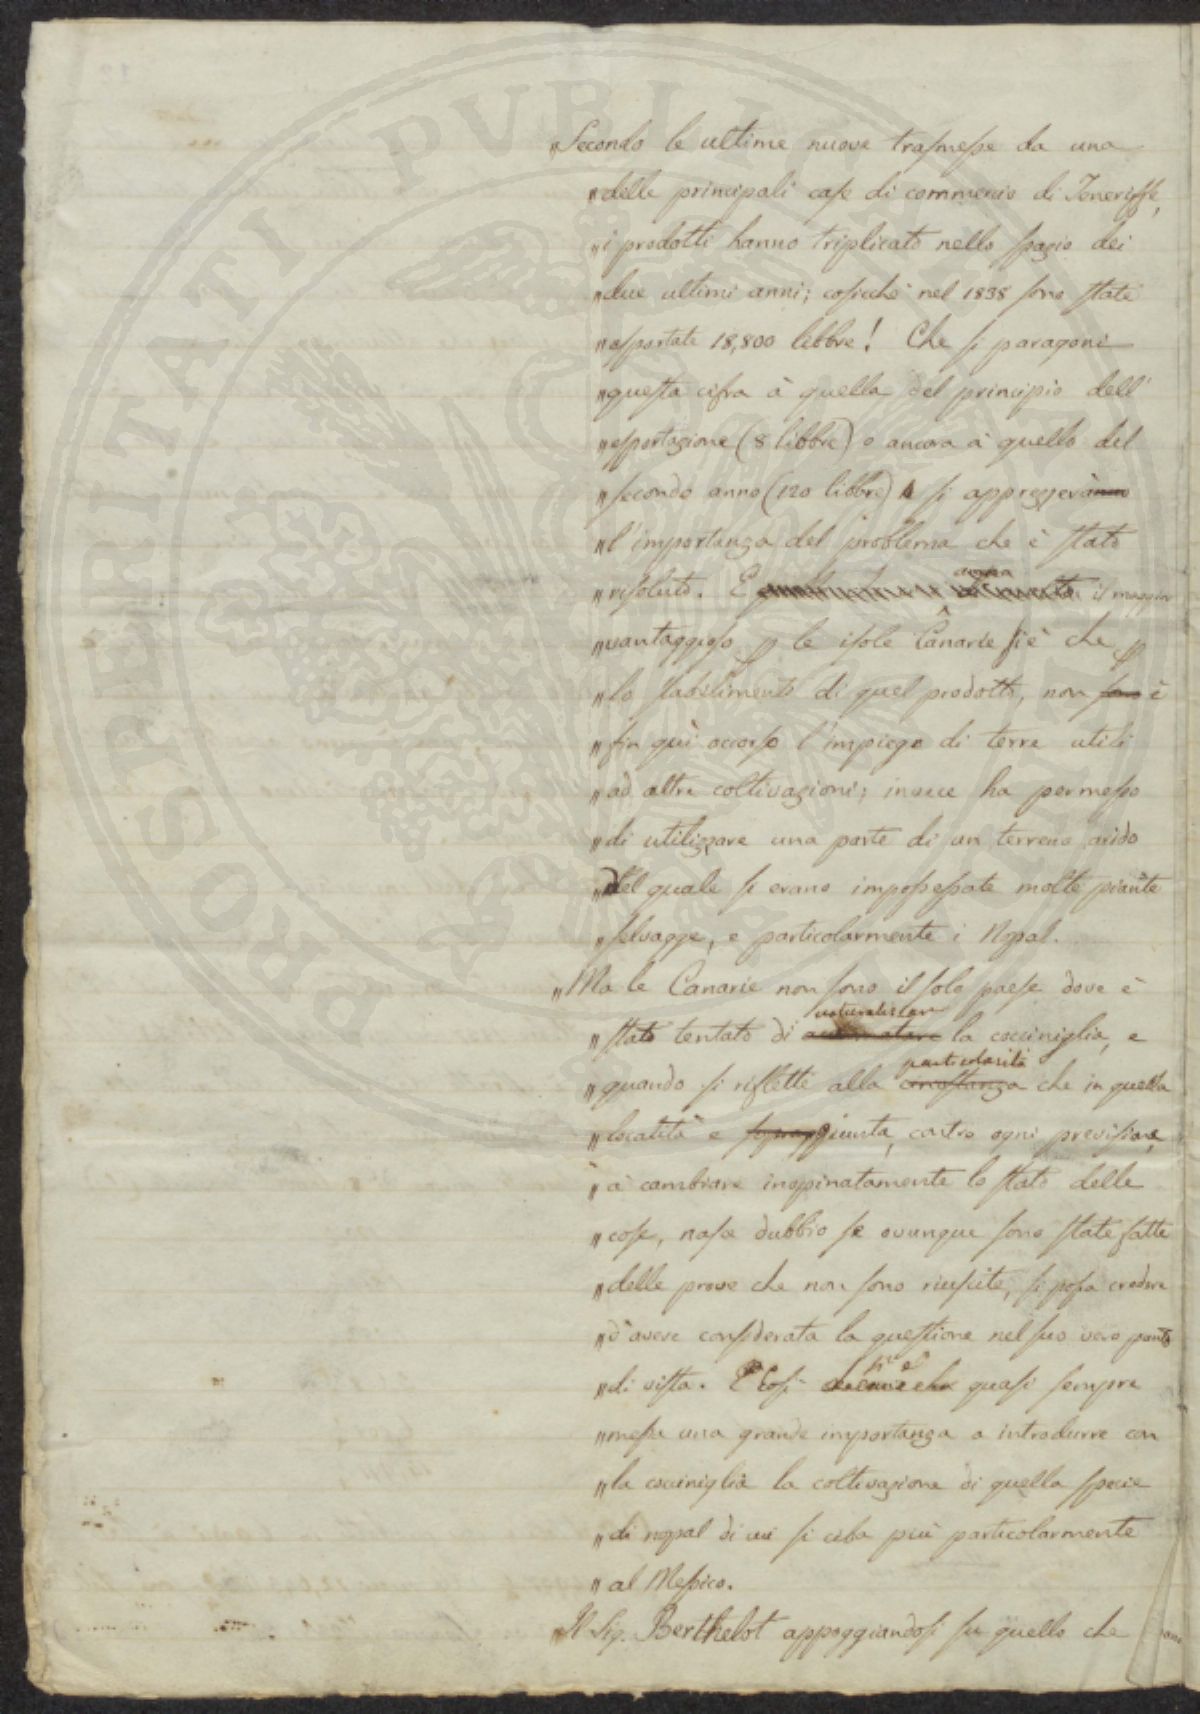 „Secondo le ultime nuove trasmesse da una
„delle principali case di commercio di Teneriffe,
„i prodotti hanno triplicato nello spazio dei
„due ultimi anni; cosicchè nel 1838 sono state
„asportate 18,800 libbre! Che si paragoni
„questa cifra à quella del principio dell'
„esportazione (8 libbre) o ancora à quello del
„secondo anno (120 libbre) si apprezzerà
„l'importanza del problema che è stato
„risoluto. E ancora il maggior
„vantaggioso le isole Canarie si è che
„lo stabilimento di quel prodotto, non sono è
„fin quì occorso l'impiego di terre utili
„ad altre coltivazioni; invece ha permesso
„di utilizzare una parte di un terreno arido
„del quale si erano impossessate molte piante
„selvagge, e particolarmente i Nopal.
„Ma le Canarie non sono il solo paese dove è
naturalizzare
„stato tentato di la cocciniglia, e
particolarità
„quando si riflette alla circostanza che in quella
„località è sopraggiunta, contro ogni previsione,
„à cambiare inopinatamente lo stato delle
„cose, nasce dubbio se ovunque sono state fatte
„delle prove che non sono riuscite, si possa credere
„d'avere considerata la questione nel suo vero punto
si è
„di vista. E Così quasi sempre
„messa una grande importanza a introdurre con
„la cocciniglia la coltivazione di quella specie
„di nopal di cui si ciba più particolarmente
„al Messico.
„Il Sig. Berthelot appoggiandosi su quello che
PROSPERITATI PUBLICAE